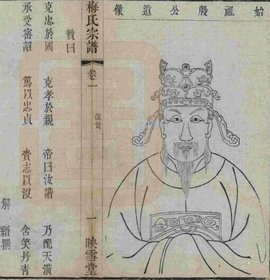 始祖殷公遺像
梅氏宗譜
卷一
像贊
一
映雪堂
贊曰
克忠於國 克孝於親 帝曰汝諧 乃 天潢
承受密詔 篤以忠貞 賫志以沒 含笑丹青
解縉撰